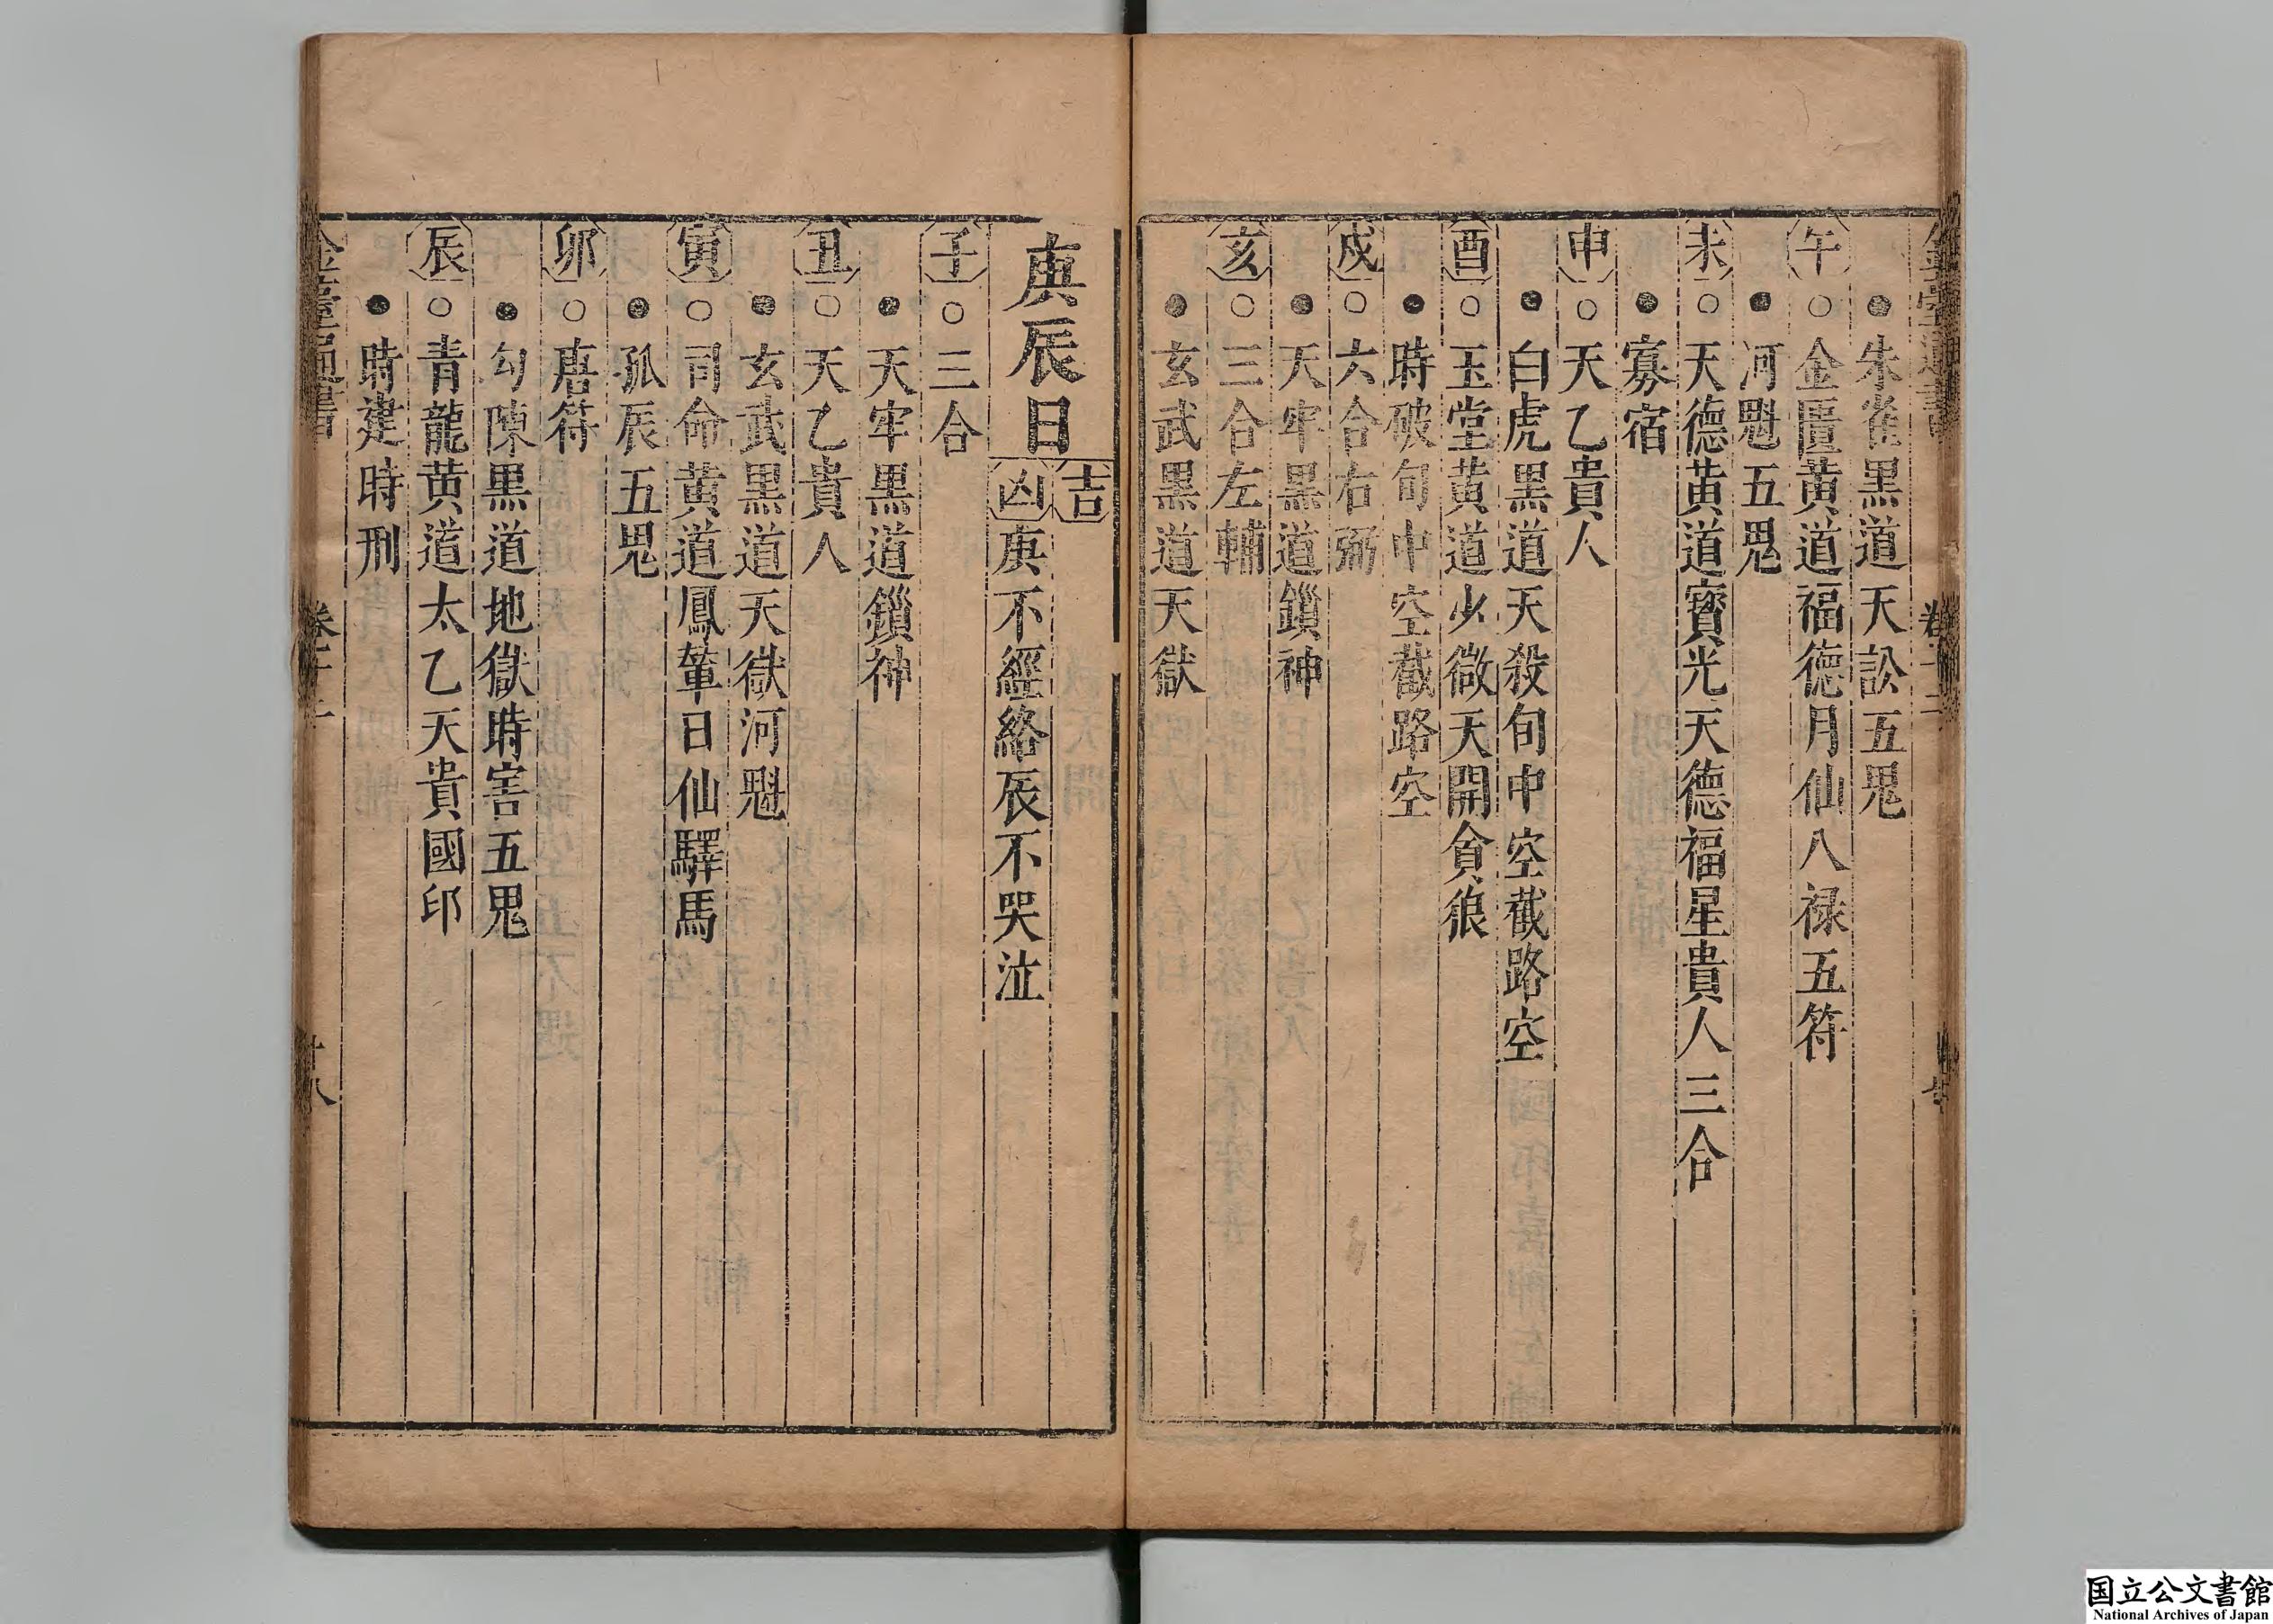 ●朱雀黑道天訟五鬼
午○金匱黄道福德月仙八禄五符
●河魁五鬼
未○天德黄道寳光天德福星貴人三合
●寡宿
申○天乙貴人
●白虎黑道天殺旬中空截路空
酉○玉堂黄道少微天開貪狼
●時破旬中空截路空
戌○六合右弼
●天牢黑道鎖神
亥○三合左輔
●玄武黑道天獄
庚辰日
吉
凶庚不經絡辰不哭泣
子○三合
●天牢黑道鎖神
丑○天乙貴人
●玄武黑道天獄河魁
寅○司命黄道鳳輦日仙驛馬
●孤辰五鬼
卯○唐符
●勾陳黑道地獄時害五鬼
辰○青龍黄道太乙天貴國印
●時建時刑
国立公文書館
National Archives of Japan